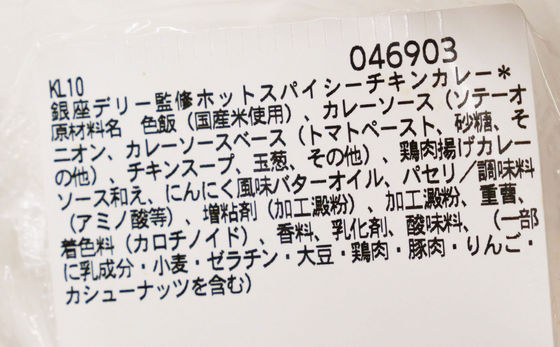 046903
KL10
銀座デリー監修ホットスパイシーチキンカレー＊
原材料名　色飯（国産米使用）、カレーソース（ソテーオ
ニオン、カレーソースベース（トマトペースト、砂糖、そ
の他）、チキンスープ、玉葱、その他）、鶏肉揚げカレー
ソース和え、にんにく風味バターオイル、パセリ／調味料
（アミノ酸等）、増粘剤（加工澱粉）、加工澱粉、重曹、
着色料（カロチノイド）、香料、乳化剤、酸味料、（一部
に乳成分・小麦・ゼラチン・大豆・鶏肉・豚肉・りんご・
カシューナッツを含む）